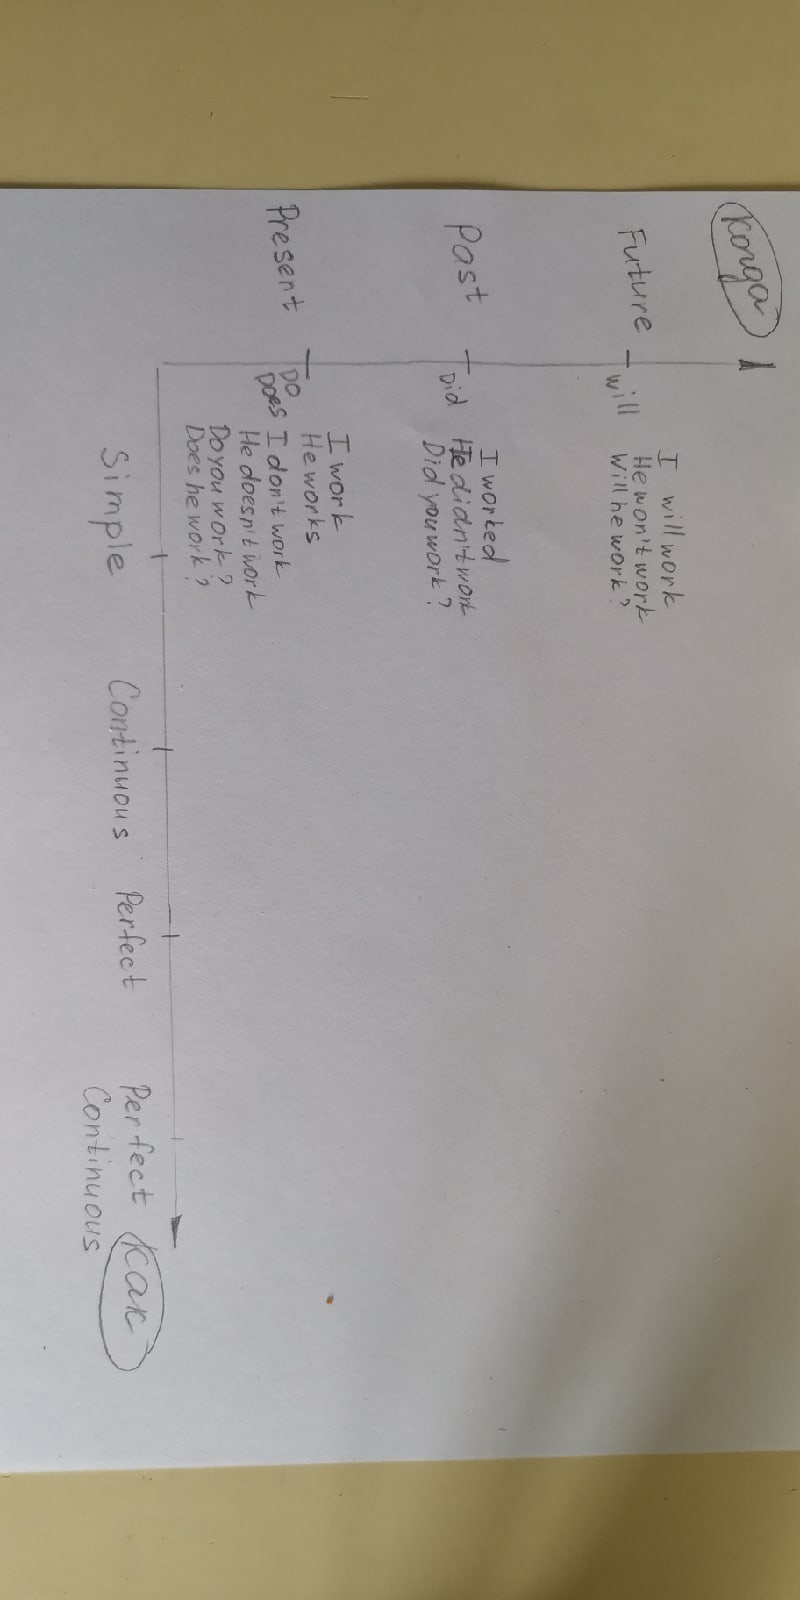 Когда
Future
will
I will work
He won't work
Will he work?
Past
Did
I worked
He didn't work
Did you work?
Present
DO
DOES
I work
He works
I don't work
He doesn't work
Do you work?
Does he work?
Simple
Continuous
Perfect
Perfect
Continuous
как